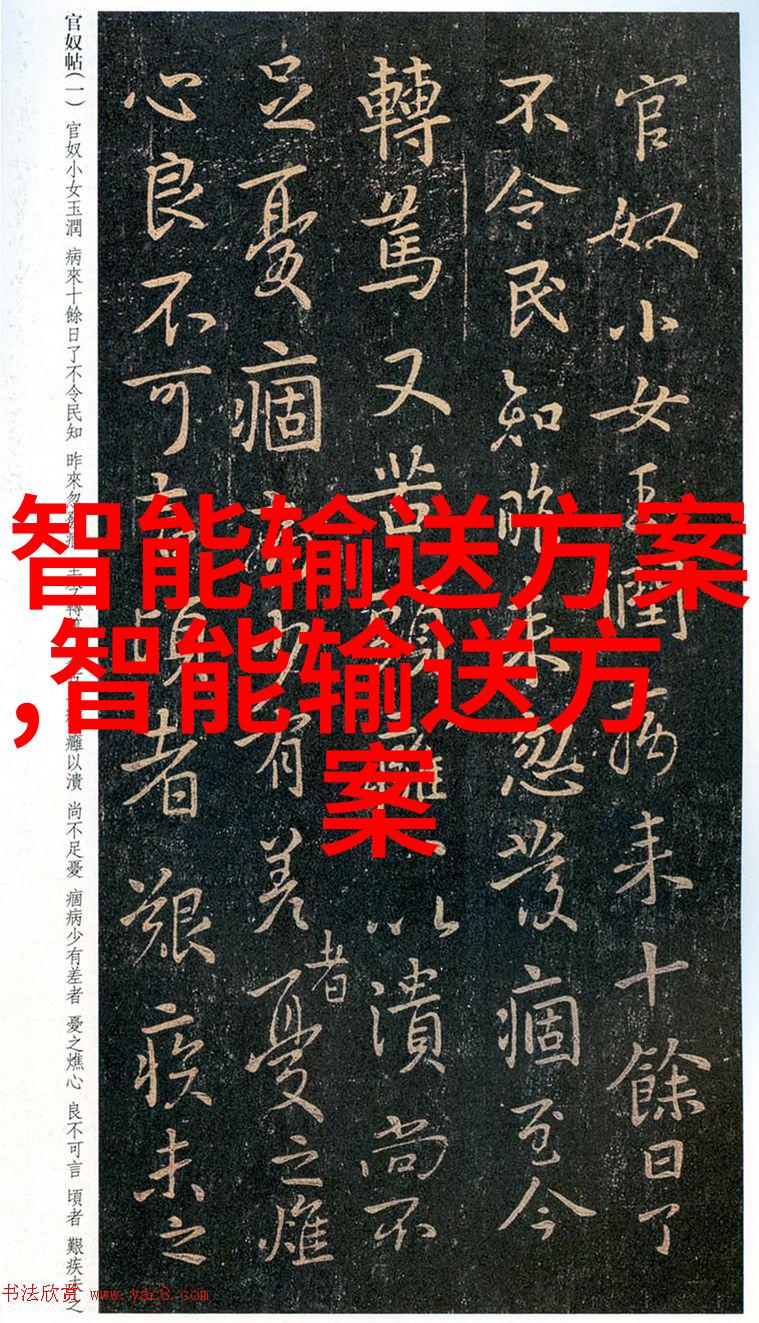 官奴帖(一) 官奴小女玉潤 病來十餘日了不令民知 昨來忽發痼 至今轉篤 癰以潰 尚不足憂 痼病少有差者 憂之燋心 良不可言 頃者 艱疾未之
官奴小女玉潤病来十餘日了
不令民知昨来忽發痼至今
轉篤又苦頭癰以潰尚不
足憂痼病少有差者憂之燋
心良不可言頃者艱疾未之
智能输送方案
,智能输送方
案
书法欣赏 www.yac8.com